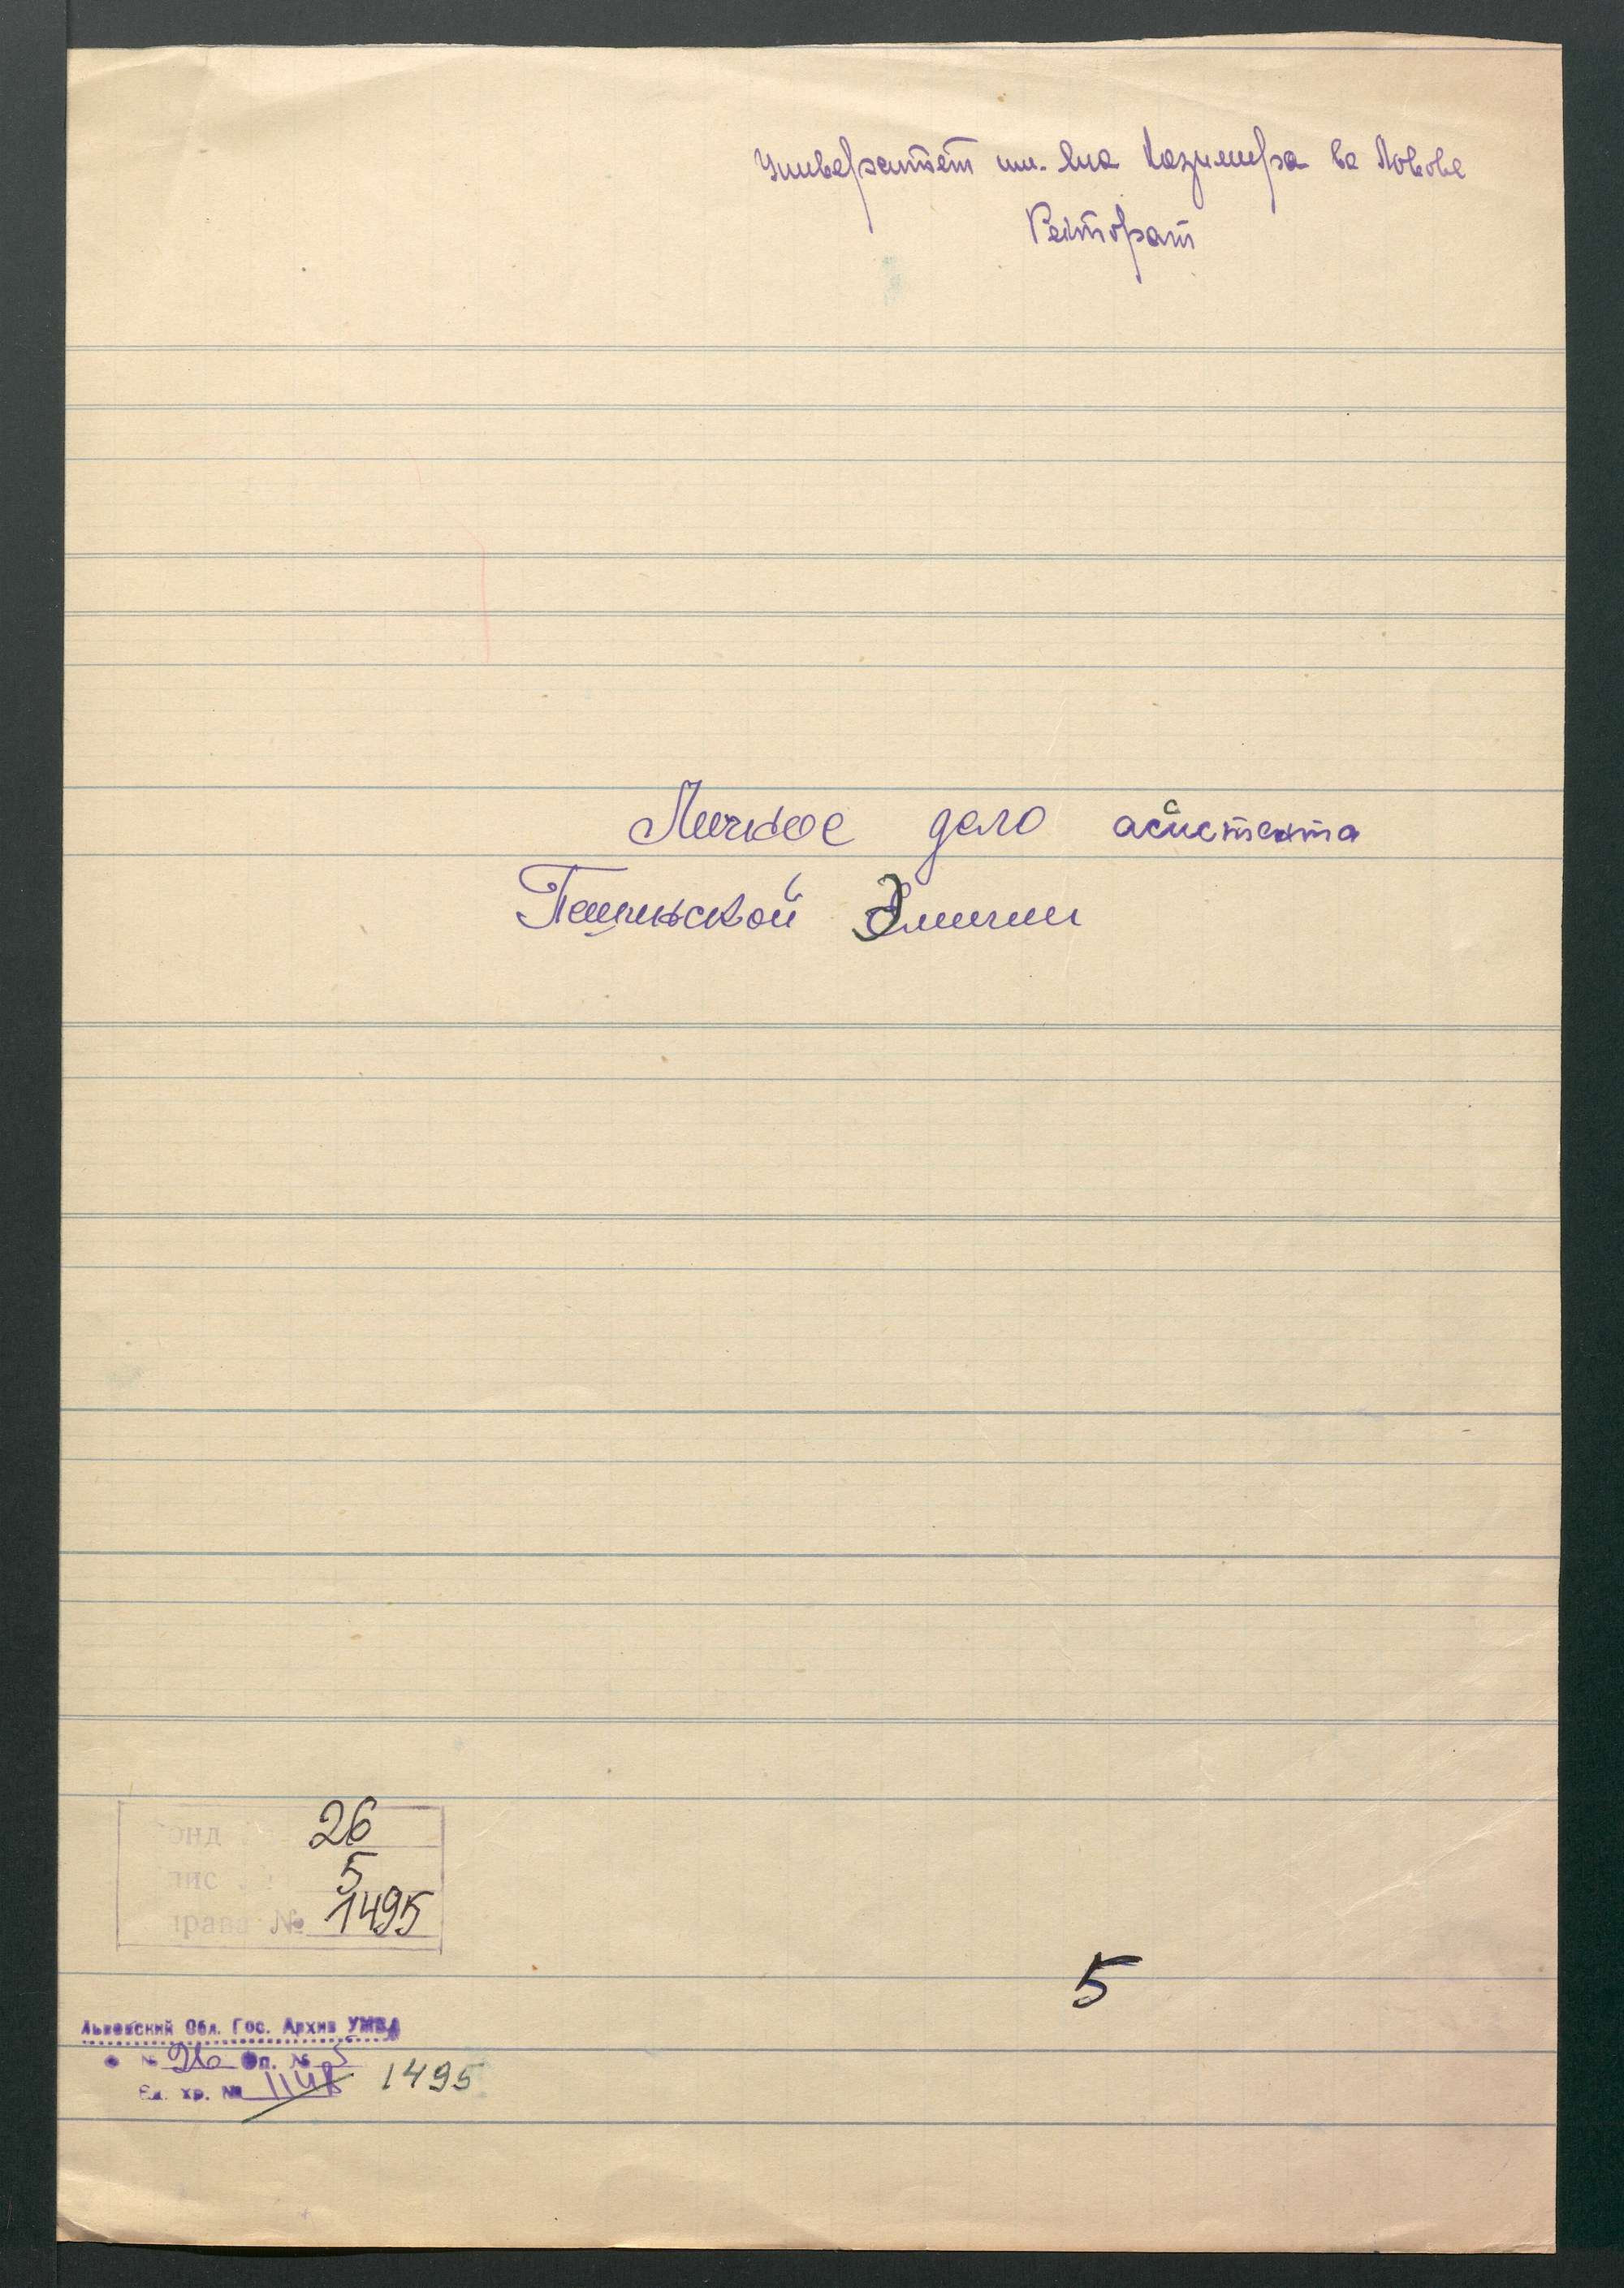 Университет им. Яна Казимира во Львове
Ректорат
Личное дело асистента
Эмилии
онд 26
пис 5
права № 1495
5
Львовский Обл. Гос. Архив УМВД
№ 26 Оп. № 5
Ед. хр. № 1495